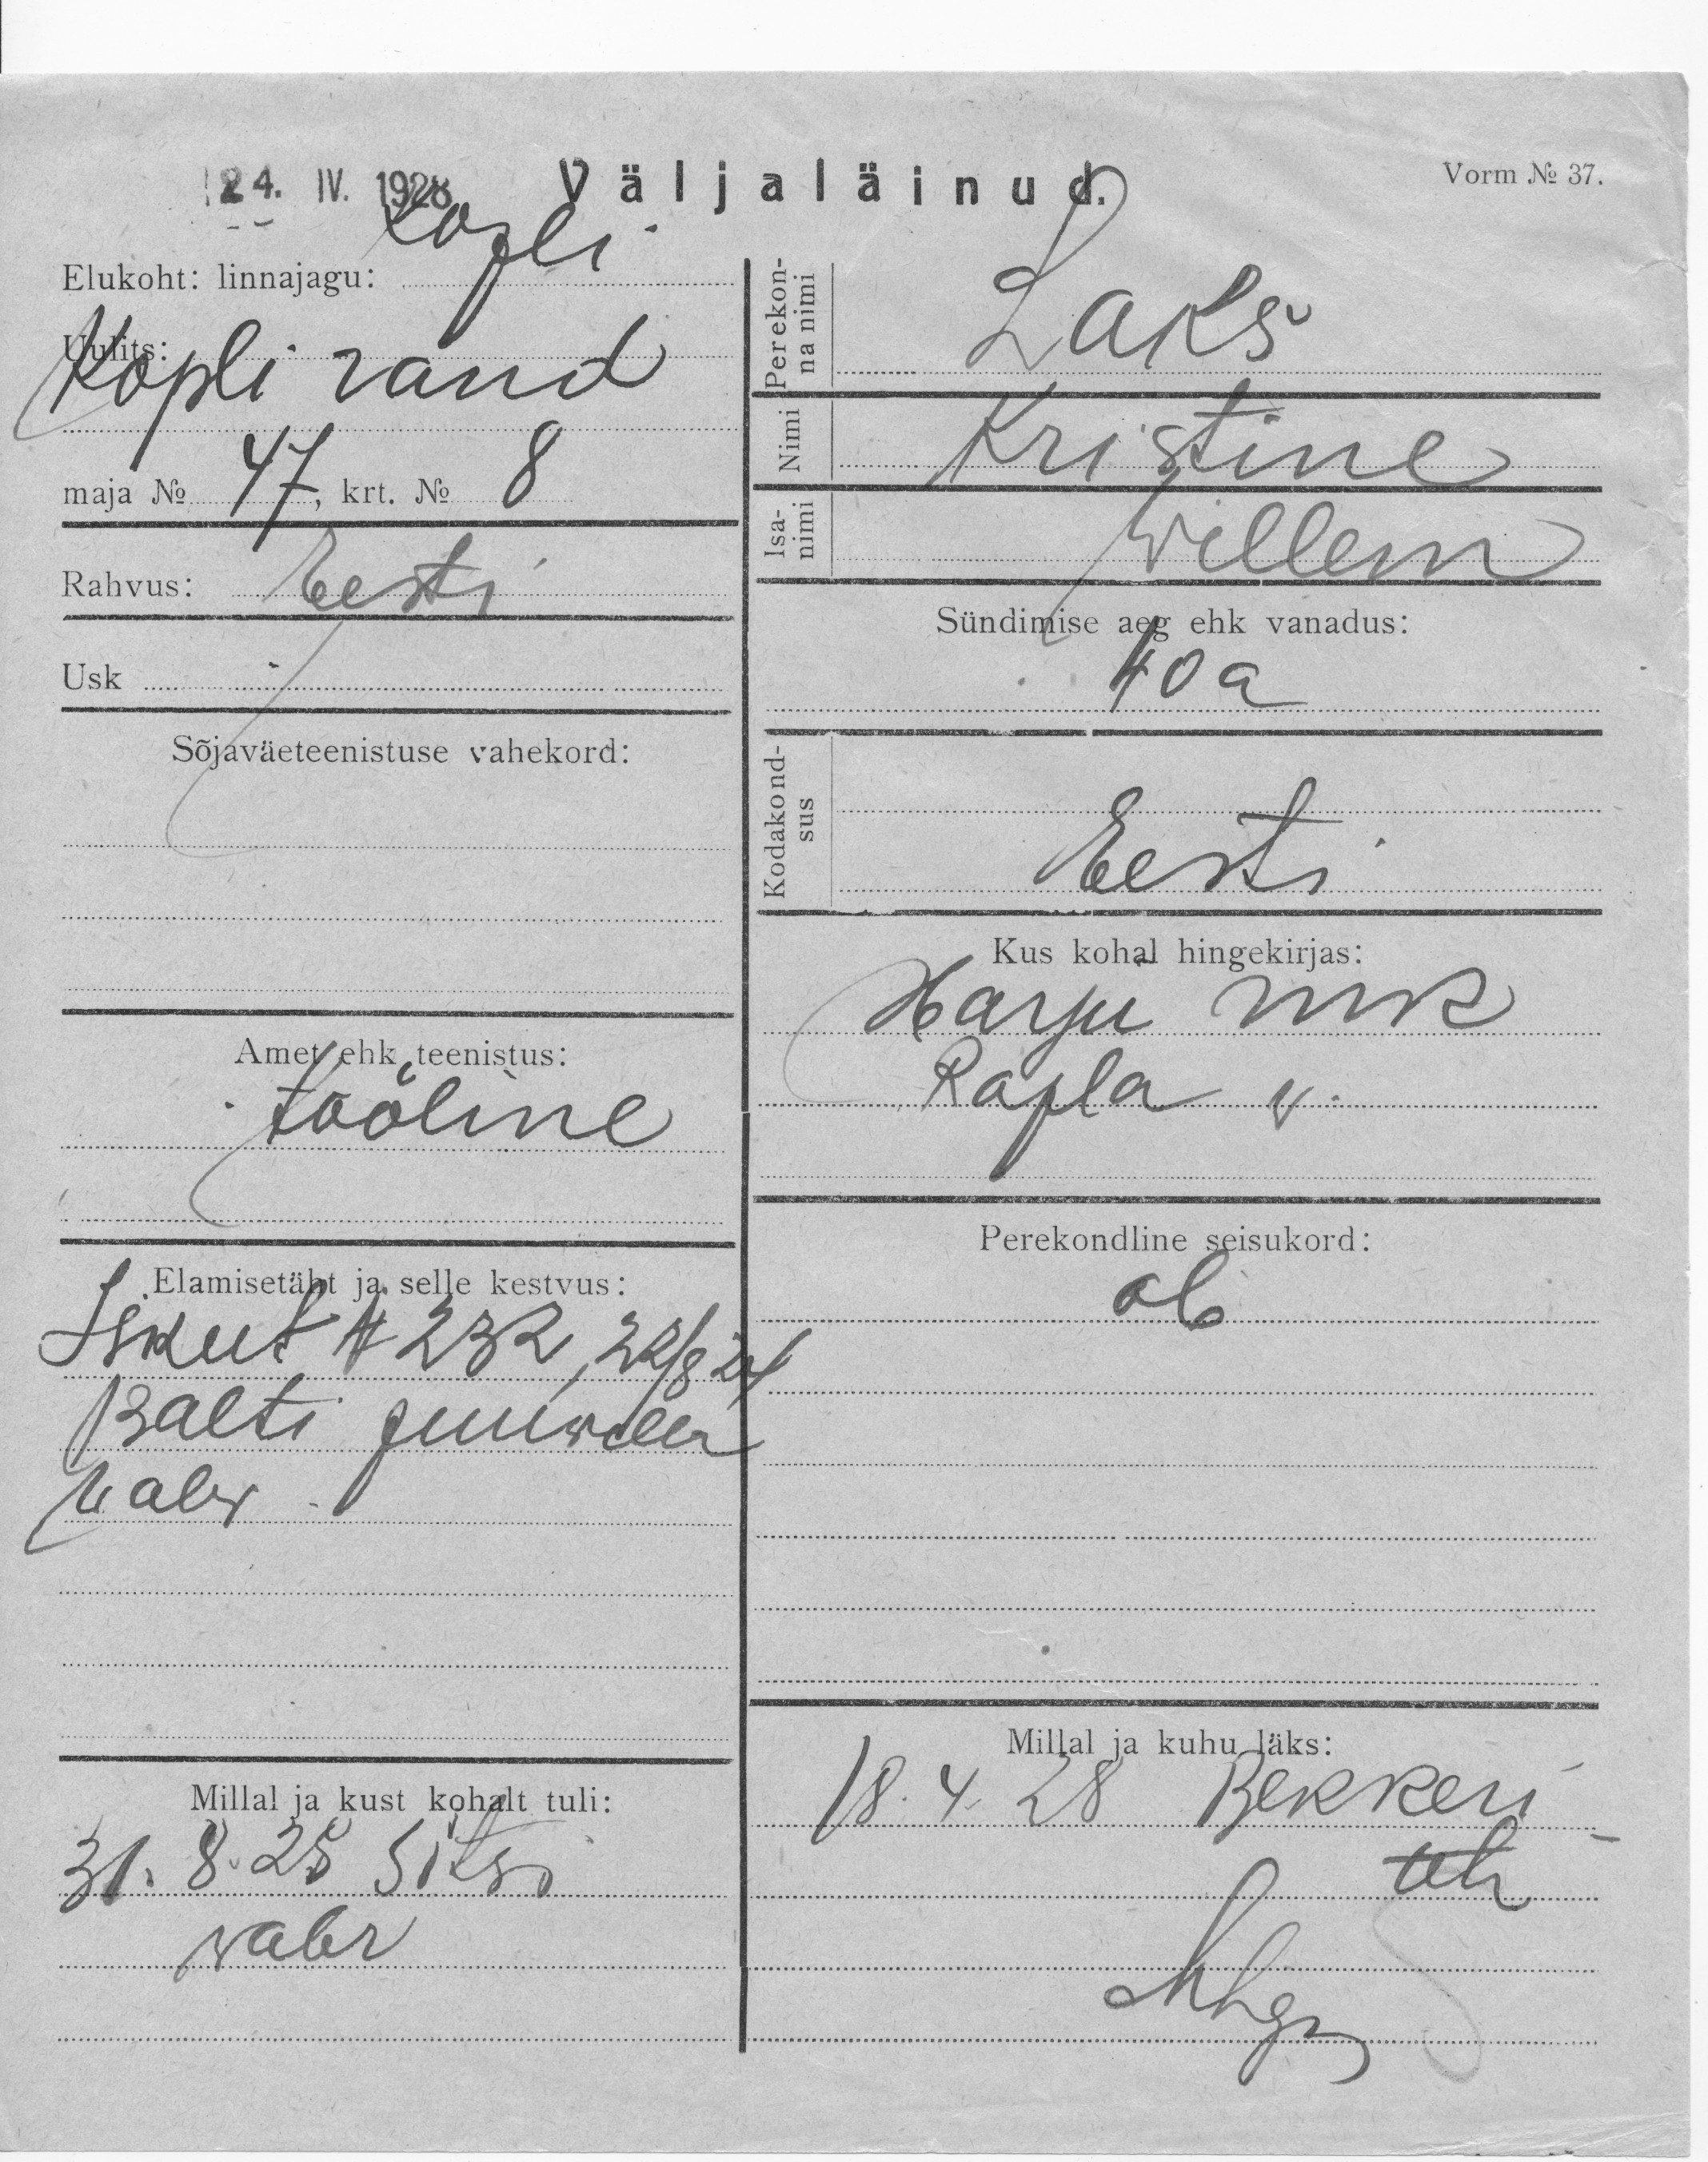 24. IV. 1928 Väljaläinud. Vorm № 37.
Elukoht: linnajagu: Kopli
Uulits:
Kopli rand
maja № 47, krt. № 8
Rahvus: Eesti
Usk
Sõjaväeteenistuse vahekord:
Amet ehk teenistus:
tööline
Elamisetäht ja selle kestvus:
Iskut № 232, 22/8 24
Balti puuvilla
vabr
Millal ja kust kohalt tuli:
31. 8. 25 Sitsi
vabr
Perekonna nimi Laks
Nimi Kristine
Isanimi Willem
Sündimise aeg ehk vanadus:
40 a
Kodakondsus
Eesti
Kus kohal hingekirjas:
Harju mk
Rapla v.
Perekondline seisukord:
ab
Millal ja kuhu läks:
18. 4. 28 Bekkeri
teh